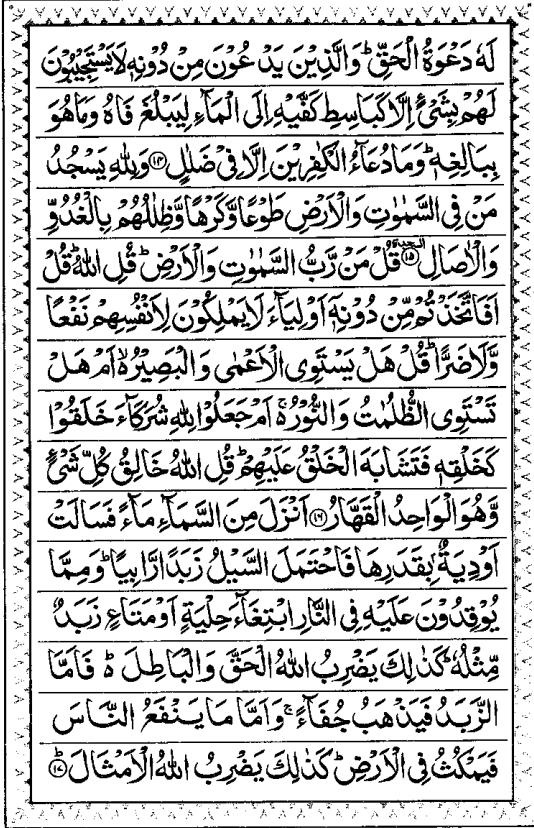 لَهٗ دَعْوَةُ الْحَقِّ ؕ وَالَّذِيْنَ يَدْعُوْنَ مِنْ دُوْنِهٖ لَا يَسْتَجِيْبُوْنَ
لَهُمْ بِشَيْءٍ اِلَّا كَبَاسِطِ كَفَّيْهِ اِلَى الْمَآءِ لِيَبْلُغَ فَاهُ وَمَا هُوَ
بِبَالِغِهٖ ؕ وَمَا دُعَآءُ الْكٰفِرِيْنَ اِلَّا فِيْ ضَلٰلٍ ۝۱۴ وَلِلّٰهِ يَسْجُدُ
مَنْ فِي السَّمٰوٰتِ وَالْاَرْضِ طَوْعًا وَّكَرْهًا وَّظِلٰلُهُمْ بِالْغُدُوِّ
وَالْاٰصَالِ ۝۱۵ السجدة قُلْ مَنْ رَّبُّ السَّمٰوٰتِ وَالْاَرْضِ ؕ قُلِ اللّٰهُ ؕ قُلْ
اَفَاتَّخَذْتُمْ مِّنْ دُوْنِهٖۤ اَوْلِيَآءَ لَا يَمْلِكُوْنَ لِاَنْفُسِهِمْ نَفْعًا
وَّلَا ضَرًّا ؕ قُلْ هَلْ يَسْتَوِي الْاَعْمٰى وَالْبَصِيْرُ ۙ۬ اَمْ هَلْ
تَسْتَوِي الظُّلُمٰتُ وَالنُّوْرُ ۚ۬ اَمْ جَعَلُوْا لِلّٰهِ شُرَكَآءَ خَلَقُوْا
كَخَلْقِهٖ فَتَشَابَهَ الْخَلْقُ عَلَيْهِمْ ؕ قُلِ اللّٰهُ خَالِقُ كُلِّ شَيْءٍ
وَّهُوَ الْوَاحِدُ الْقَهَّارُ ۝۱۶ اَنْزَلَ مِنَ السَّمَآءِ مَآءً فَسَالَتْ
اَوْدِيَةٌۢ بِقَدَرِهَا فَاحْتَمَلَ السَّيْلُ زَبَدًا رَّابِيًا ؕ وَمِمَّا
يُوْقِدُوْنَ عَلَيْهِ فِي النَّارِ ابْتِغَآءَ حِلْيَةٍ اَوْ مَتَاعٍ زَبَدٌ
مِّثْلُهٗ ؕ كَذٰلِكَ يَضْرِبُ اللّٰهُ الْحَقَّ وَالْبَاطِلَ ؕ۬ فَاَمَّا
الزَّبَدُ فَيَذْهَبُ جُفَآءً ۚ وَاَمَّا مَا يَنْفَعُ النَّاسَ
فَيَمْكُثُ فِي الْاَرْضِ ؕ كَذٰلِكَ يَضْرِبُ اللّٰهُ الْاَمْثَالَ ؕ۝۱۷